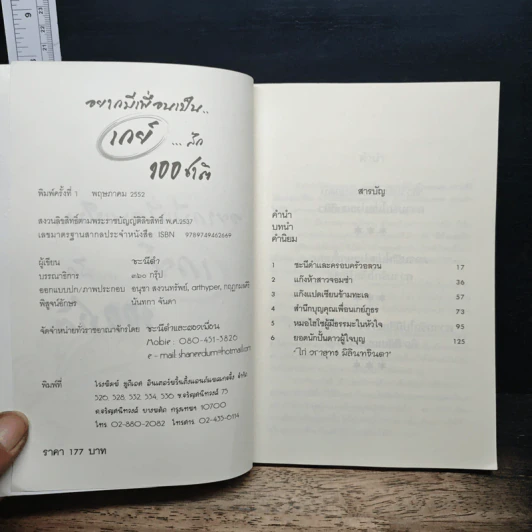 อยากมีเพื่อนเป็น..
เกย์ ...สัก
100 ชาติ
พิมพ์ครั้งที่ 1 พฤษภาคม 2552
สงวนลิขสิทธิ์ตามพระราชบัญญัติลิขสิทธิ์ พ.ศ.2537
เลขมาตรฐานสากลประจำหนังสือ ISBN 9789749462669
ผู้เขียน ชะนีดำ
บรรณาธิการ ๓๖๓ กรุ๊ป
ออกแบบปก/ภาพประกอบ อนุชา สงวนทรัพย์, arthyper,
พิสูจน์อักษร นันทภา จันดา
จัดจำหน่ายทั่วราชอาณาจักรโดย ชะนีดำและผองเพื่อน
Mobile : 080-431-3826
e-mail shanerdum@hotmail.com
พิมพ์ที่
526, 528, 532, 534, 536 ถ.จรัญสนิทวงศ์ 75
ถ.จรัญสนิทวงศ์ บางพลัด กรุงเทพฯ 10700
โทร 02-880-2082 โทรสาร 02-435-6114
ราคา 177 บาท
สารบัญ
คำนำ
บทนำ
คำนิยม
1 ชะนีดำและครอบครัวอลวน 17
2 แก๊งห้าสาวจอมซ่า 36
3 แก๊งแปดเซียนข้ามทะเล 57
4 สำนึกบุญคุณเพื่อนเกย์ภูธร 73
5 หมอไฮโซผู้มีธรรมะในหัวใจ 95
6 ยอดนักปั้นดาวผู้ใจบุญ 125